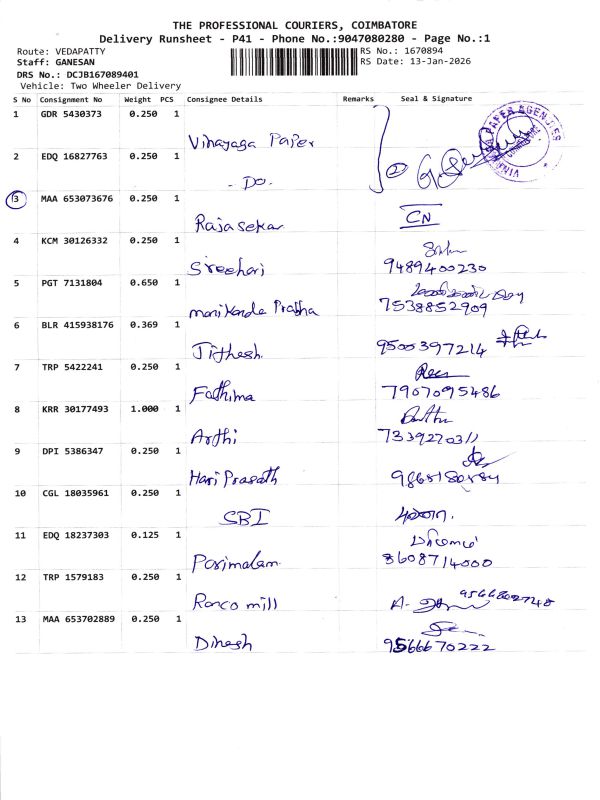 THE PROFESSIONAL COURIERS, COIMBATORE
Delivery Runsheet - P41 - Phone No.:9047080280 - Page No.:1
Route: VEDAPATTY
RS No.: 1670894
Staff: GANESAN
RS Date: 13-Jan-2026
DRS No.: DCJB167089401
Vehicle: Two Wheeler Delivery
S No Consignment No Weight PCS Consignee Details Remarks Seal & Signature
1 GDR 5430373 0.250 1 Vinayaga Paper
2 EDQ 16827763 0.250 1 - Do. 2
3 MAA 653073676 0.250 1 Rajasekar CN
4 KCM 30126332 0.250 1 Sreehari 9489400230
5 PGT 7131804 0.650 1 manikanda Prabha 7538852909
6 BLR 415938176 0.369 1 Jithesh 9500397214
7 TRP 5422241 0.250 1 Fathima 7907095486
8 KRR 30177493 1.000 1 Arthi 7339270311
9 DPI 5386347 0.250 1 Hari Prasath
10 CGL 18035961 0.250 1 SBI
11 EDQ 18237303 0.125 1 Parimalam 8608714000
12 TRP 1579183 0.250 1 Ranco mill 9566802748
13 MAA 653702889 0.250 1 Dinesh 9566670222
PAPER AGENCIES